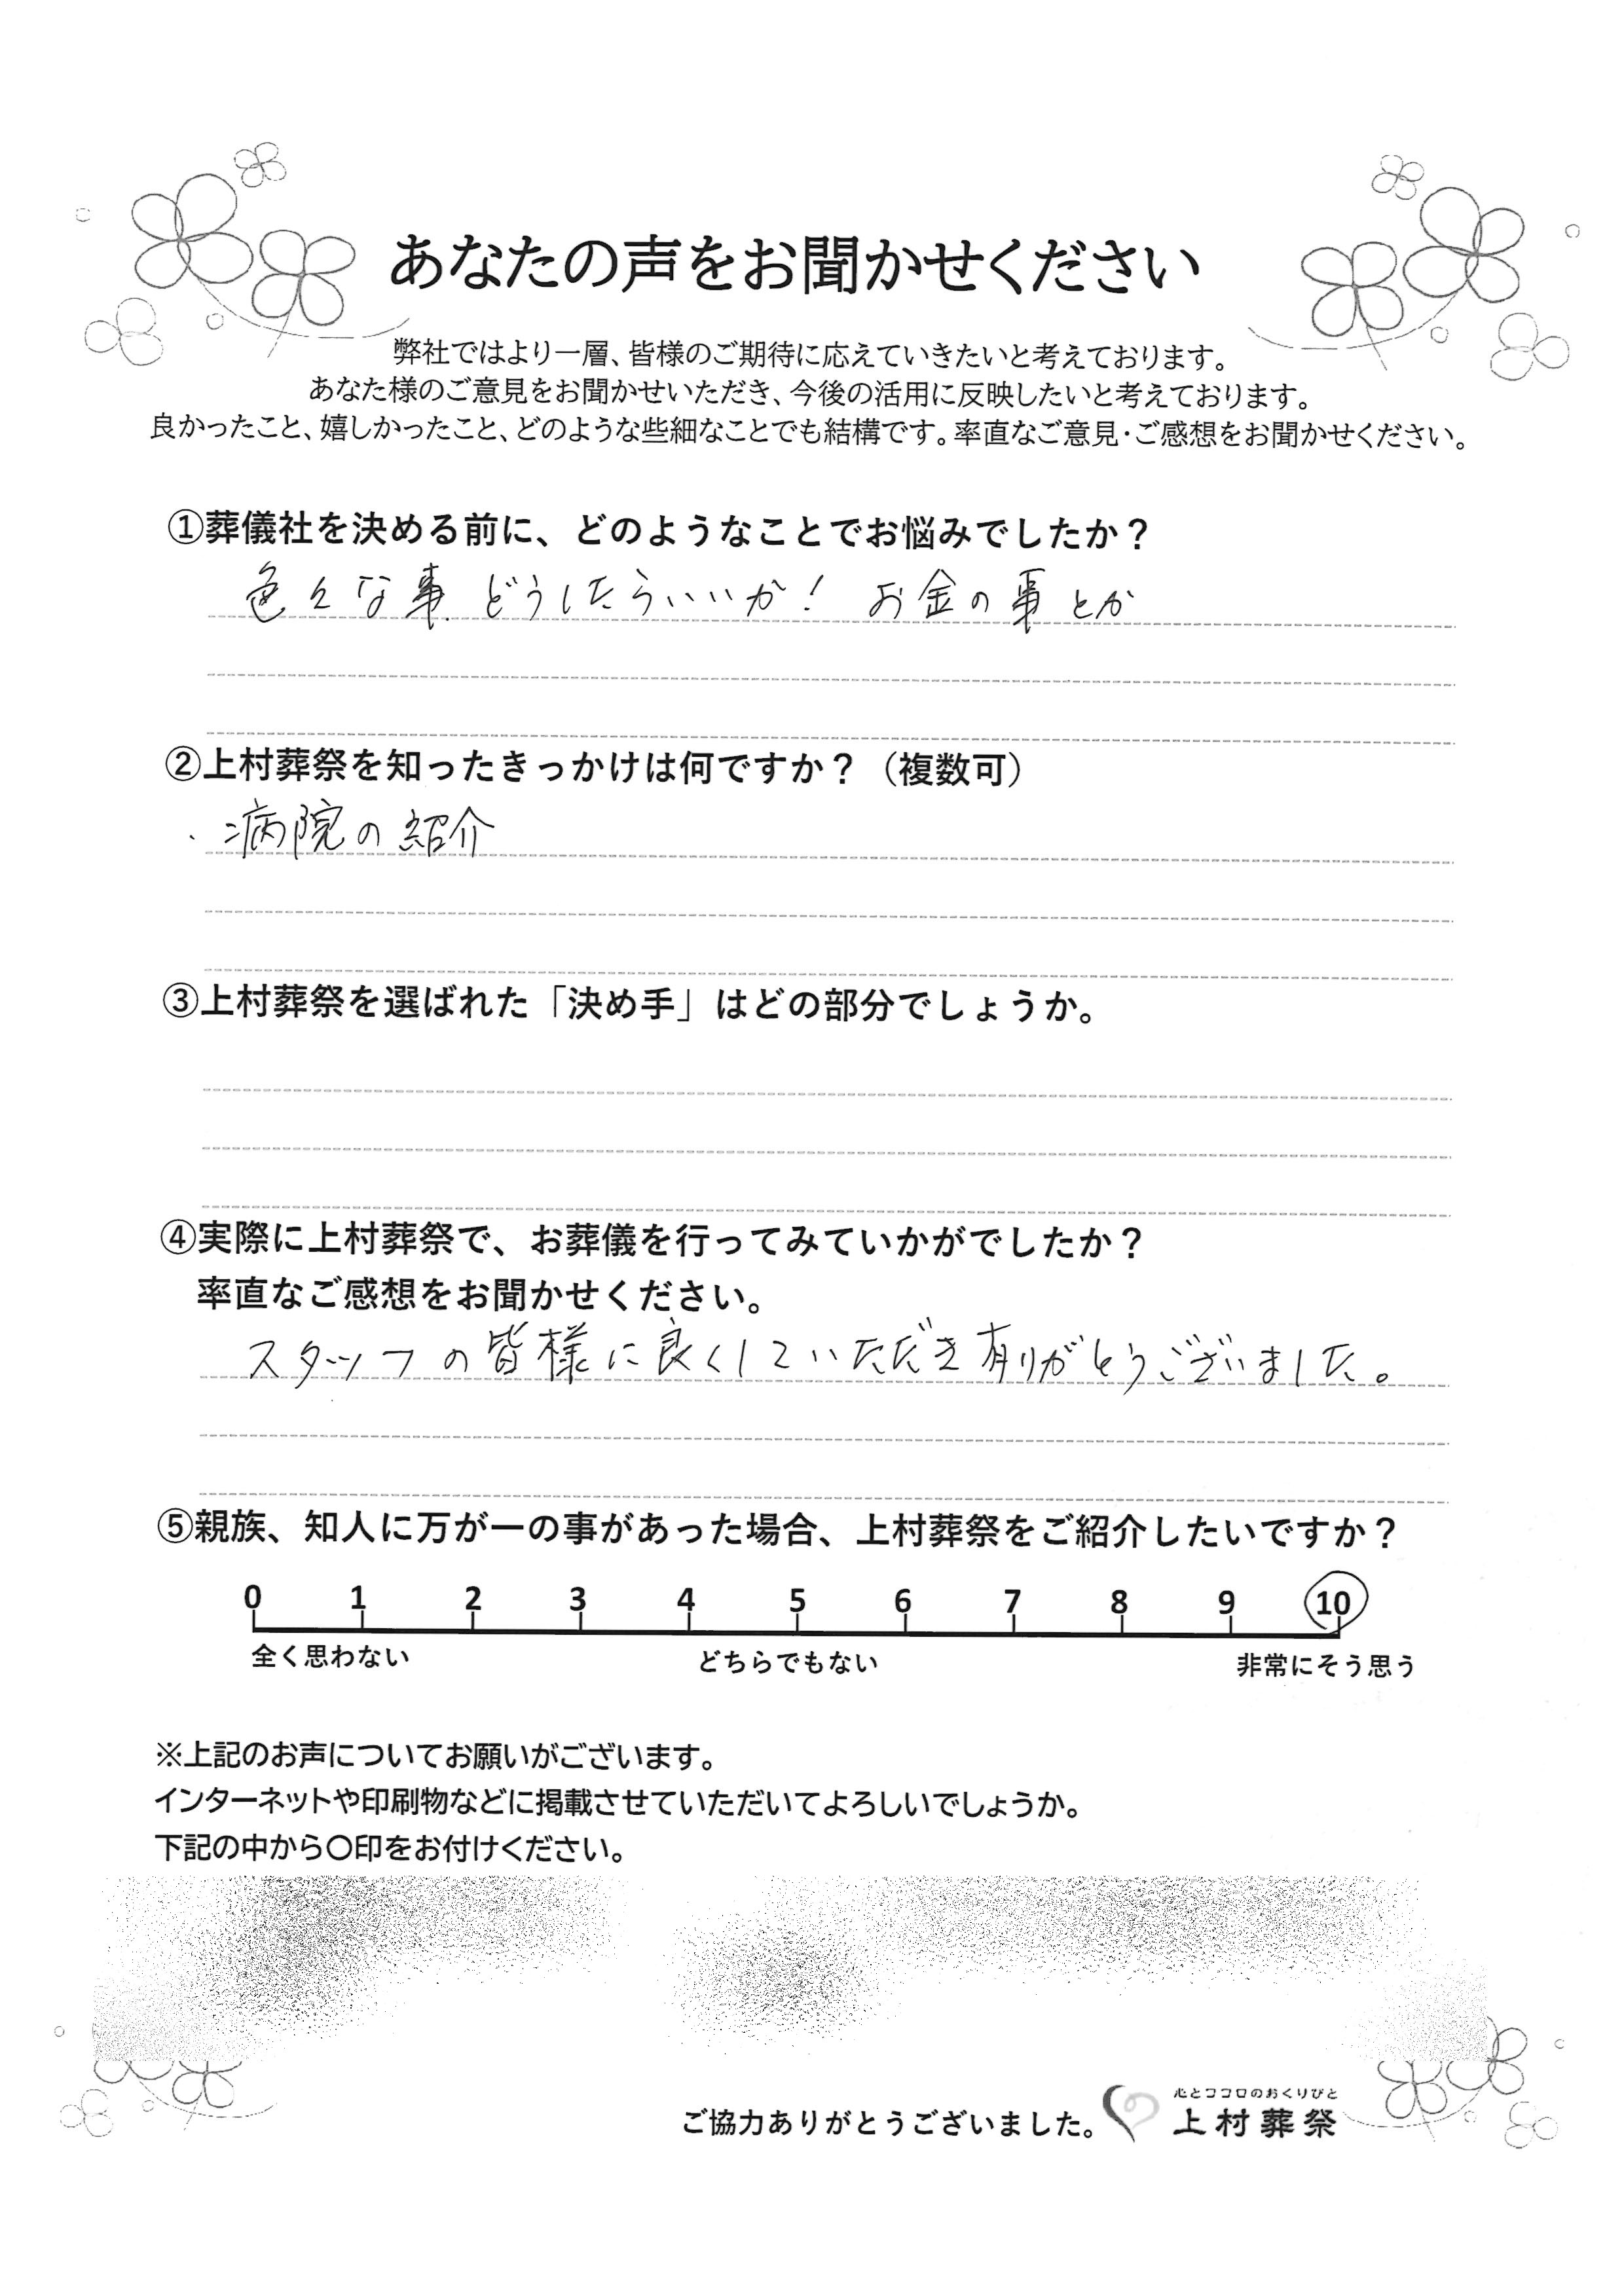 あなたの声をお聞かせください
弊社ではより一層、皆様のご期待に応えていきたいと考えております。
あなた様のご意見をお聞かせいただき、今後の活用に反映したいと考えております。
良かったこと、嬉しかったこと、どのような些細なことでも結構です。率直なご意見・ご感想をお聞かせください。
①葬儀社を決める前に、どのようなことでお悩みでしたか？
色々な事 どうしたらいいか！ お金の事とか
②上村葬祭を知ったきっかけは何ですか？（複数可）
・病院の紹介
③上村葬祭を選ばれた「決め手」はどの部分でしょうか。
④実際に上村葬祭で、お葬儀を行ってみていかがでしたか？
率直なご感想をお聞かせください。
スタッフの皆様に良くしていただき有りがとうございました。
⑤親族、知人に万が一の事があった場合、上村葬祭をご紹介したいですか？
0 1 2 3 4 5 6 7 8 9 10
全く思わない どちらでもない 非常にそう思う
※上記のお声についてお願いがございます。
インターネットや印刷物などに掲載させていただいてよろしいでしょうか。
下記の中から〇印をお付けください。
心とココロのおくりびと
ご協力ありがとうございました。 上村葬祭